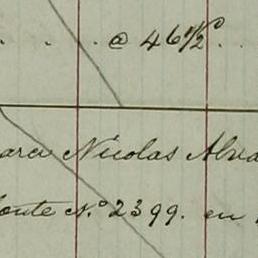 . . . @ 46 1/2 º . .
para Nicolas Alva
Monte N.º 2399. en